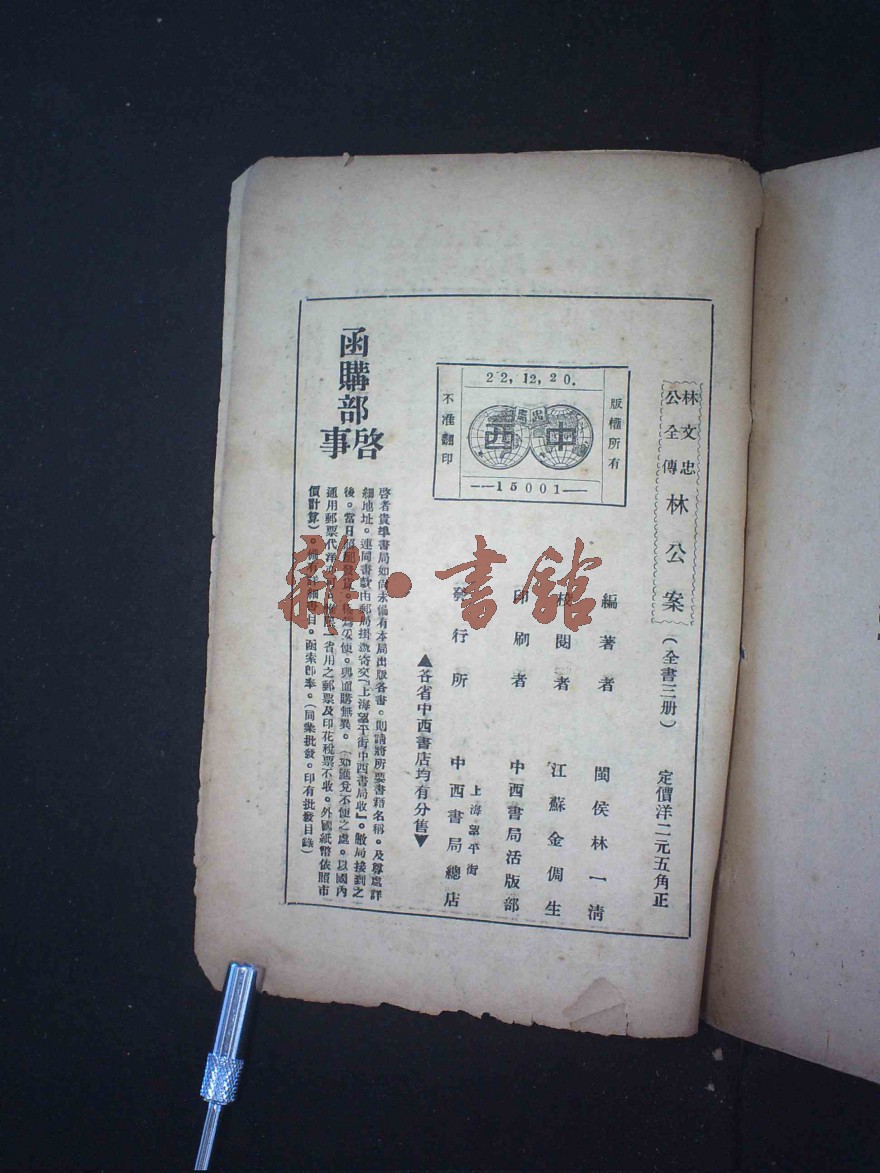 林文忠
公全傳
林公案
(全書三册)
定價洋二元五角正
編著者 閩侯林一清
校閱者 江蘇金倜生
印刷者 中西書局活版部
發行所 上海望平街 中西書局總店
▲各省中西書店均有分售▼
版權所有
22,12,20.
中西
—15001—
不准翻印
函購部啓事
啓者貴埠書局如尚未備有本局出版各書。則請將所要書籍名稱。及尊處詳
細地址。連同書款由郵局掛號寄交『上海望平街中西書局收』。敝局接到之
後。當日 妥便。與面購無異。(如匯兌不便之處。以國內
通用郵票代洋 一省用之郵票及印花稅票不收。外國紙幣依照市
價計算)。備有詳細書目。函索即奉。(同業批發。印有批發目錄)
雜·書館